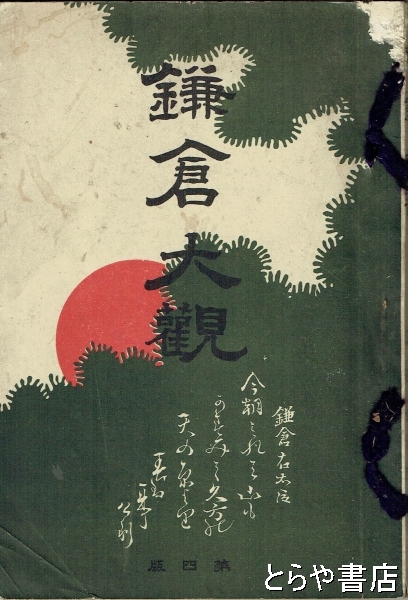 鎌倉大觀
鎌倉右大臣
今朝みれは山も
かすみて久方の
天の原より
春は
第四版
とらや書店